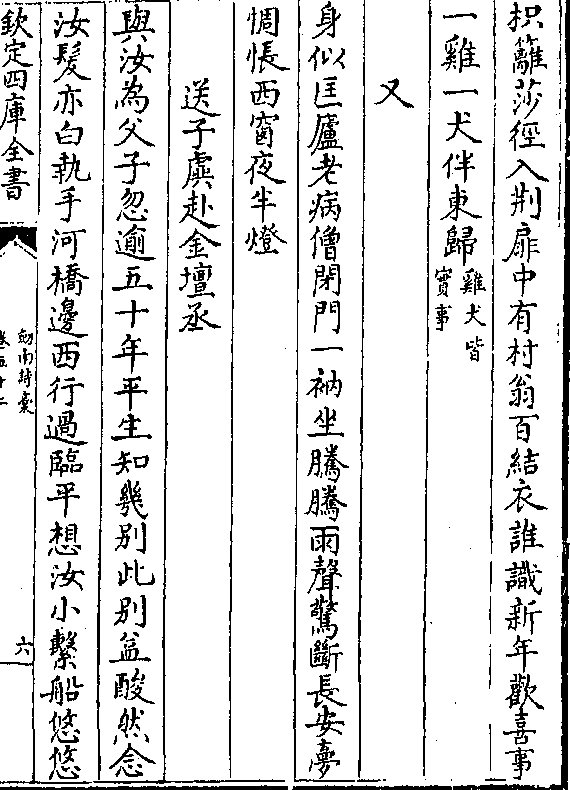 枳籬莎徑入荆扉中有村翁百結衣誰識新年歡喜事
一雞一犬伴東歸雞犬皆
實事
又
身似匡廬老病僧閉門一衲坐騰騰雨聲驚斷長安夢
惆悵西窗夜半燈
送子虡赴金壇丞
與汝為父子忽逾五十年平生知幾别此别益酸然念
汝髪亦白執手河橋邊西行過臨平想汝小繫船悠悠
欽定四庫全書
劒南詩藁
卷五十二
六